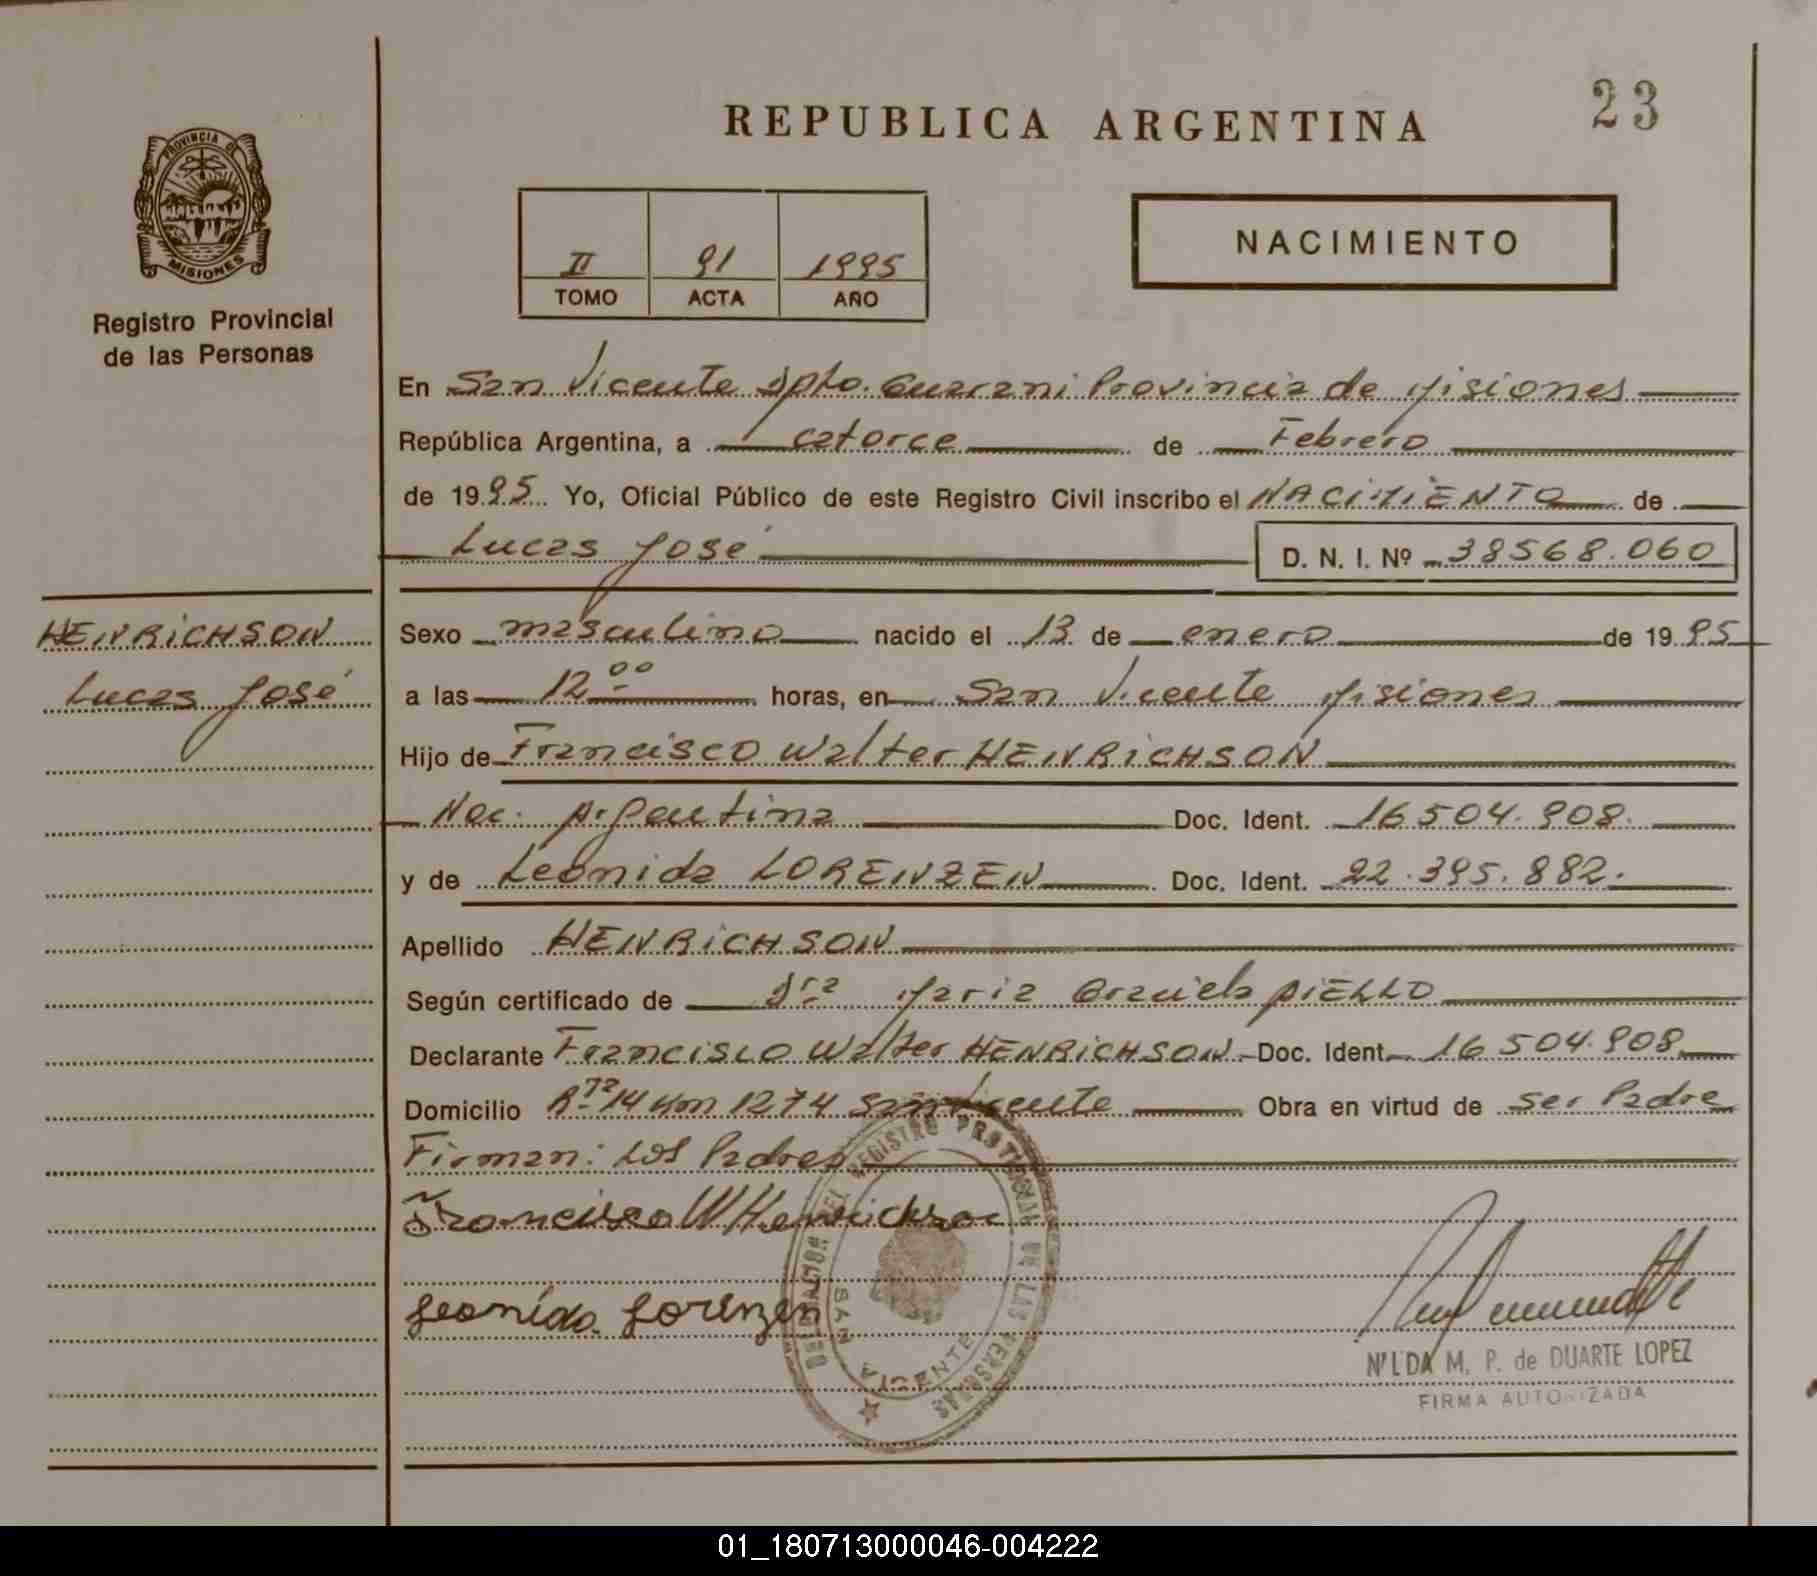 REPUBLICA ARGENTINA
23
PROVINCIA DE
MISIONES
Registro Provincial
de las Personas
II 91 1995
TOMO ACTA AÑO
NACIMIENTO
En San Vicente Dpto. Guarani Provincia de Misiones
República Argentina, a catorce de Febrero
de 1995 Yo, Oficial Público de este Registro Civil inscribo el NACIMIENTO de
Lucas José D. N. I. Nº 38568.060
HENRICHSON
Lucas José
Sexo masculino nacido el 13 de enero de 1995
a las 12 00 horas, en San Vicente Misiones
Hijo de Francisco Walter HENRICHSON
Nac. Argentina Doc. Ident. 16504.908.
y de Leonida LORENZEN Doc. Ident. 22.395.882.
Apellido HENRICHSON
Según certificado de Dra Maria Graciela AIELLO
Declarante Francisco Walter HENRICHSON Doc. Ident. 16504.908
Domicilio Rta 14 Km 1274 San Vicente Obra en virtud de ser Padre
Firman: Los Padres
Francisco W Henrichson
Leonida Lorenzen
DELEGACION DEL REGISTRO PROVINCIAL DE LAS PERSONAS
SAN VICENTE
NILDA M. P. de DUARTE LOPEZ
FIRMA AUTORIZADA
01_180713000046-004222